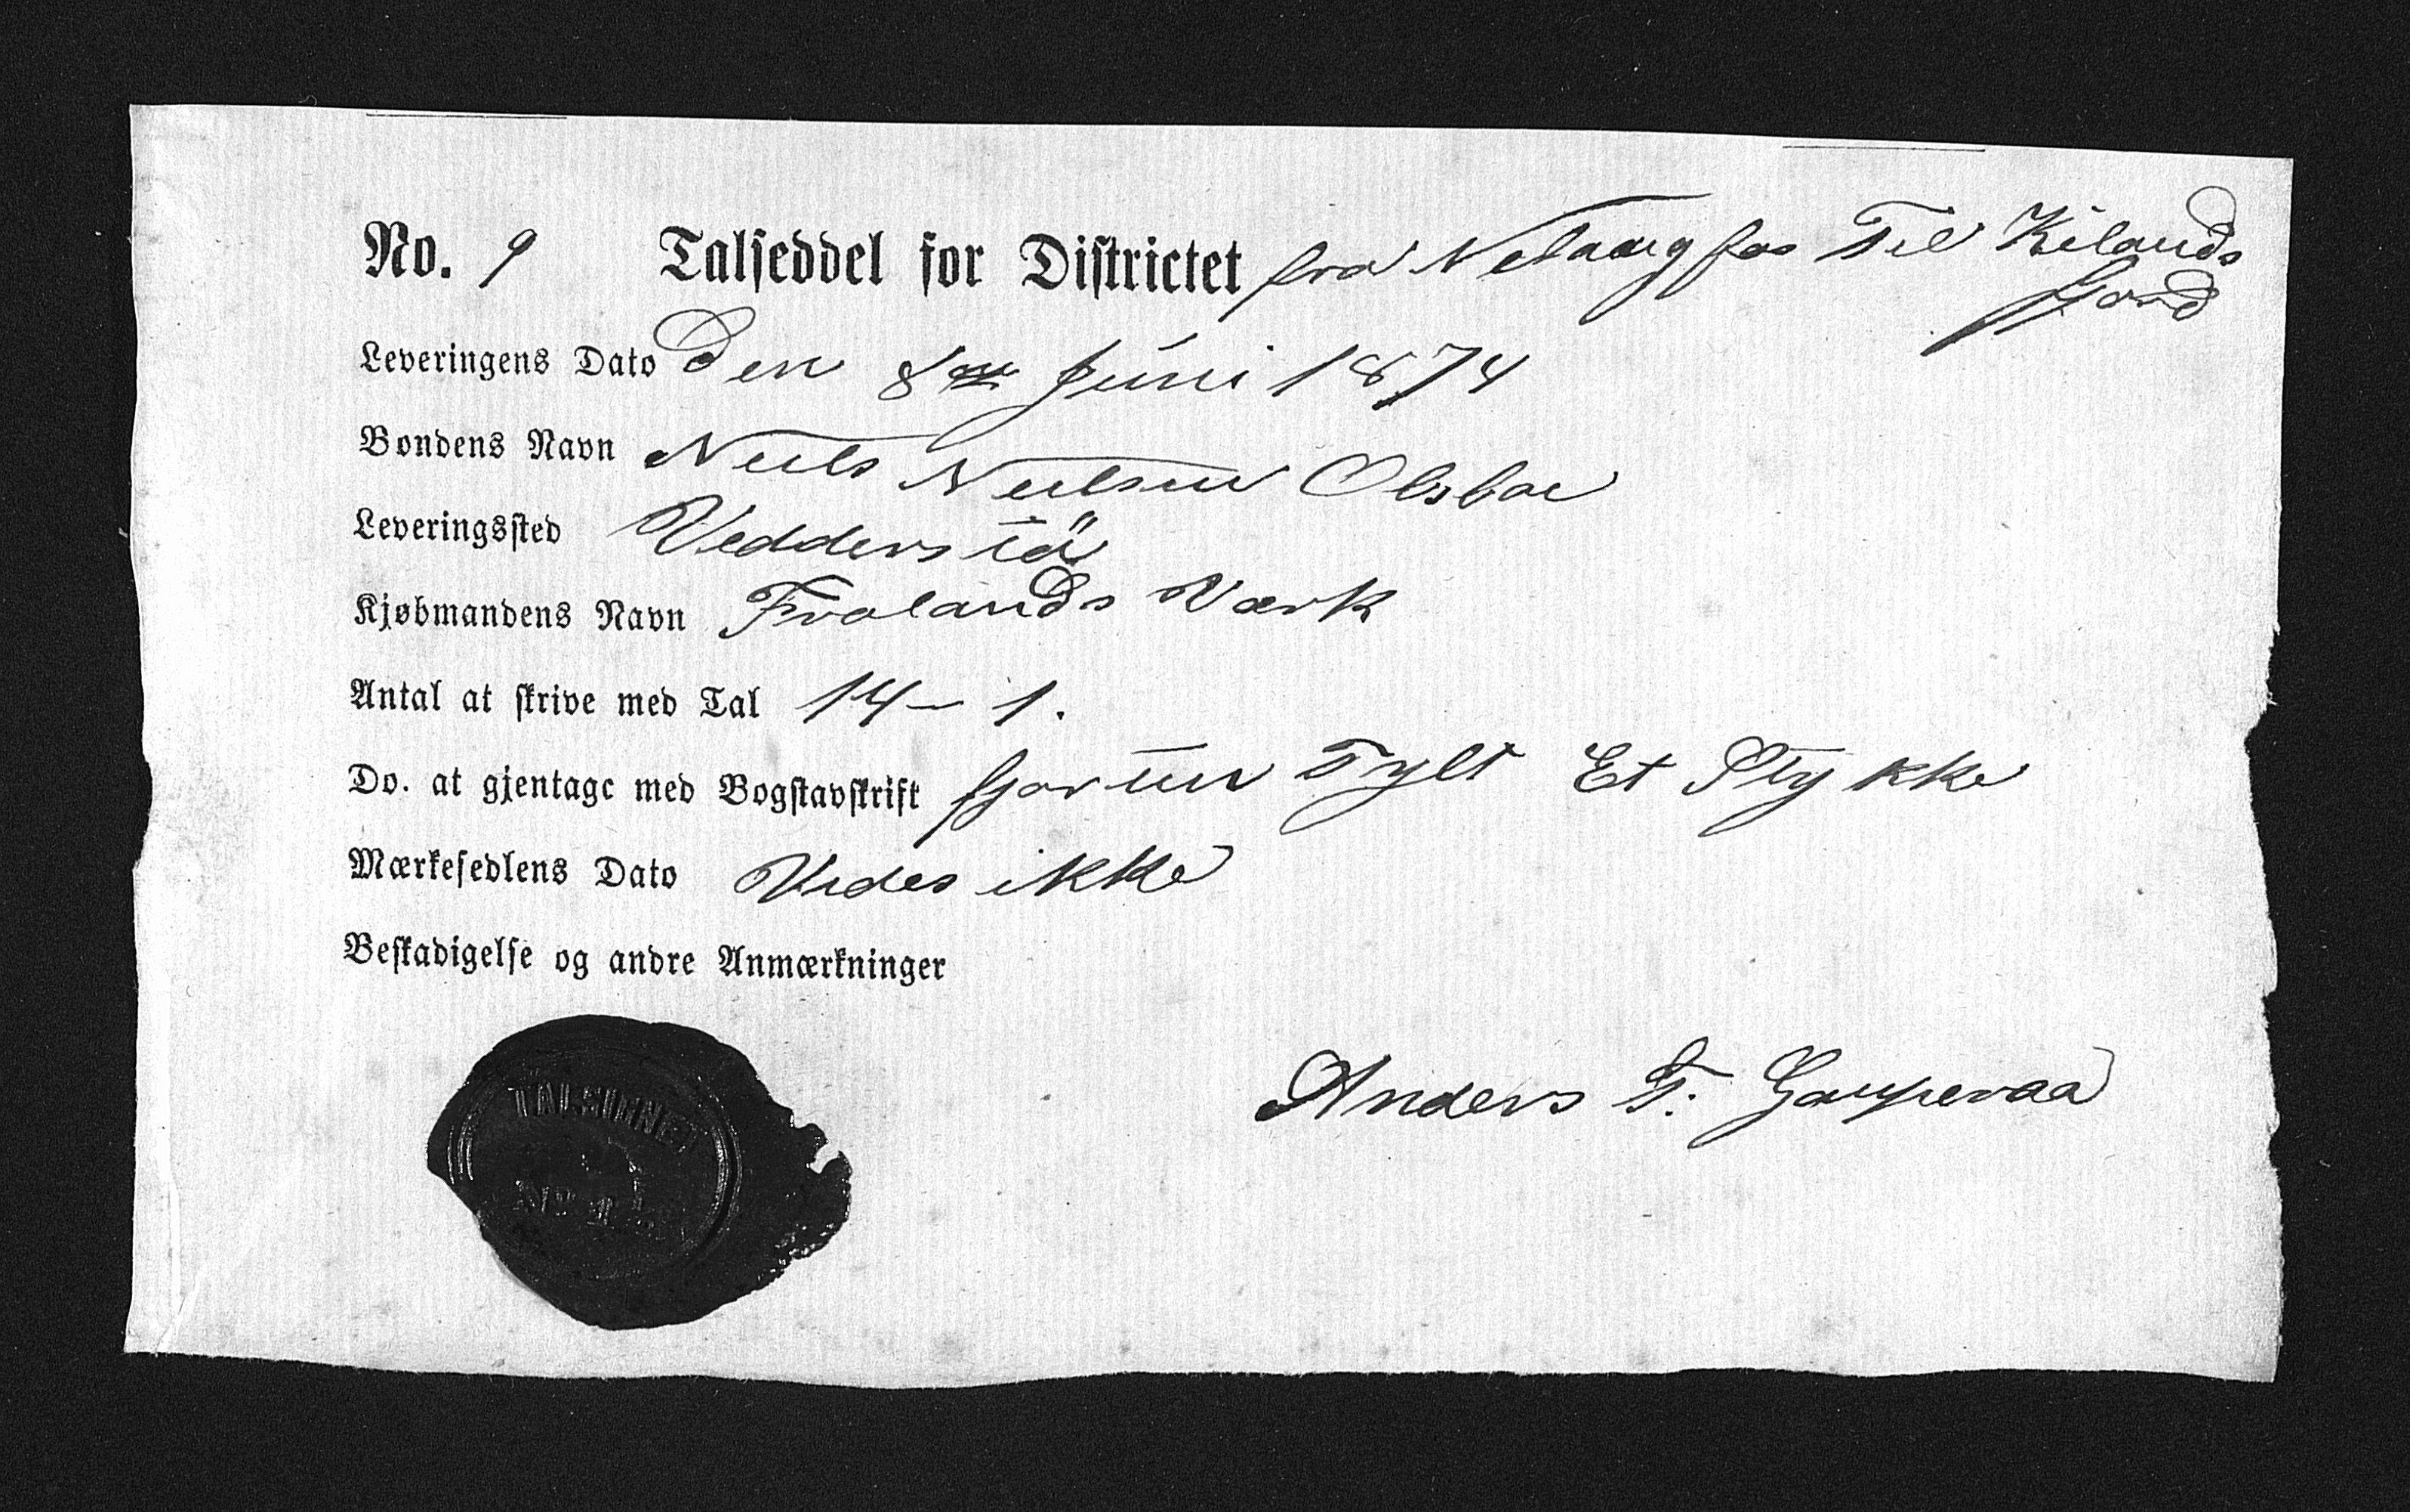 No. 9 Talseddel for Districtet fra Nelaugfos Til Kilands
fjord
Leveringens Dato Den 8de Juni 1874
Bondens Navn Neils Neilsen Olsboe
Leveringssted Vedderstö
Kjøbmandens Navn Frolands Værk
Antal at skrive med Tal 14 - 1.
Do. at gjentage med Bogstavskrift fjorten Tylt Et Stykke
Mærkesedlens Dato Vides ikke
Beskadigelse og andre Anmærkninger
Anders T. Gauperaa
TALSIGNET
No 12